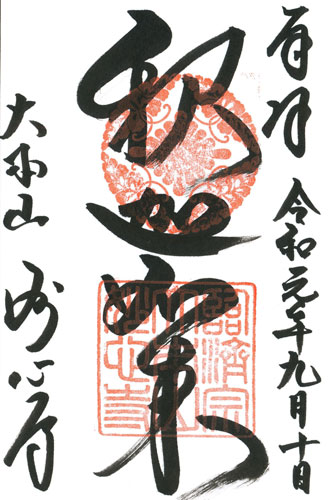 奉拝 令和元年九月十日
釈迦如来
大本山 妙心寺
臨済宗
大本山
妙心寺